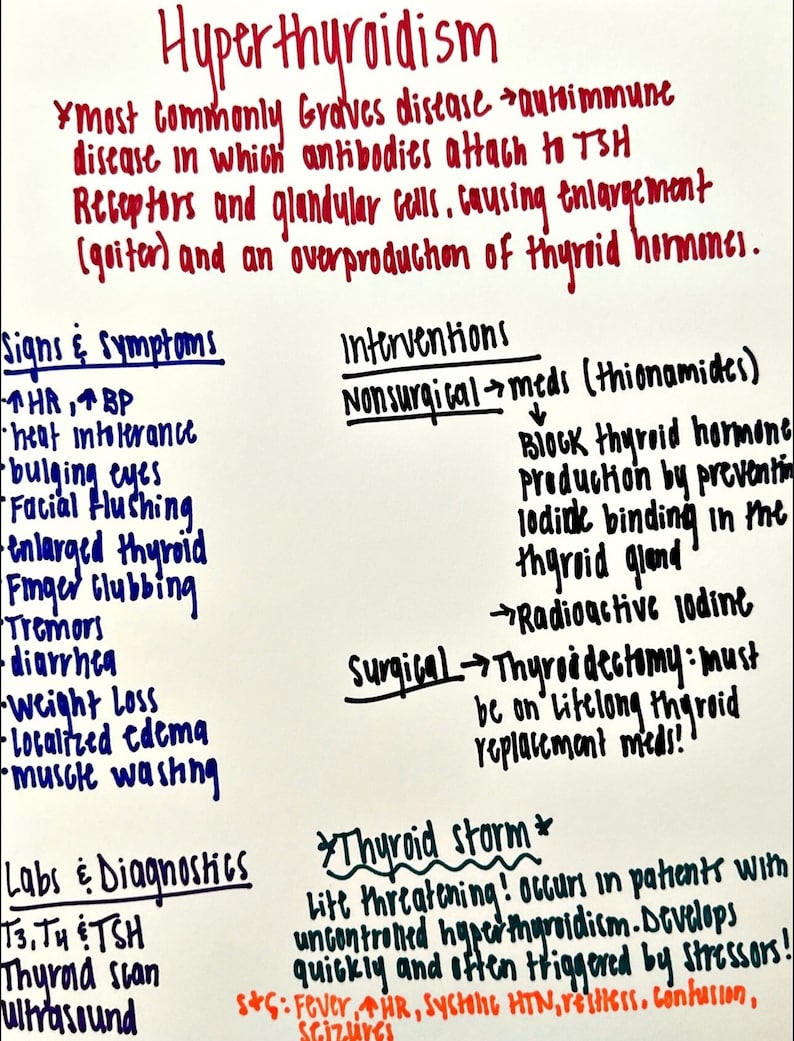 Hyperthyroidism
*most commonly Graves disease → autoimmune
disease in which antibodies attach to TSH
Receptors and glandular cells, causing enlargement
(goiter) and an overproduction of thyroid hormones.
Signs & Symptoms
· ↑ HR, ↑ BP
· heat intolerance
· bulging eyes
· Facial flushing
· enlarged thyroid
· Finger clubbing
· Tremors
· diarrhea
· Weight Loss
· Localized edema
· muscle wasting
Labs & Diagnostics
T3, T4 & TSH
Thyroid scan
Ultrasound
Interventions
Nonsurgical → meds (thionamides)
↓
Block thyroid hormone
production by preventin
Iodide binding in the
thyroid gland
→ Radioactive Iodine
Surgical → Thyroidectomy: must
be on lifelong thyroid
replacement meds!
*Thyroid storm*
Life threatening! occurs in patients with
uncontrolled hyperthyroidism. Develops
quickly and often triggered by stressors!
S+S: Fever, ↑HR, systolic HTN, restless, confusion,
seizures